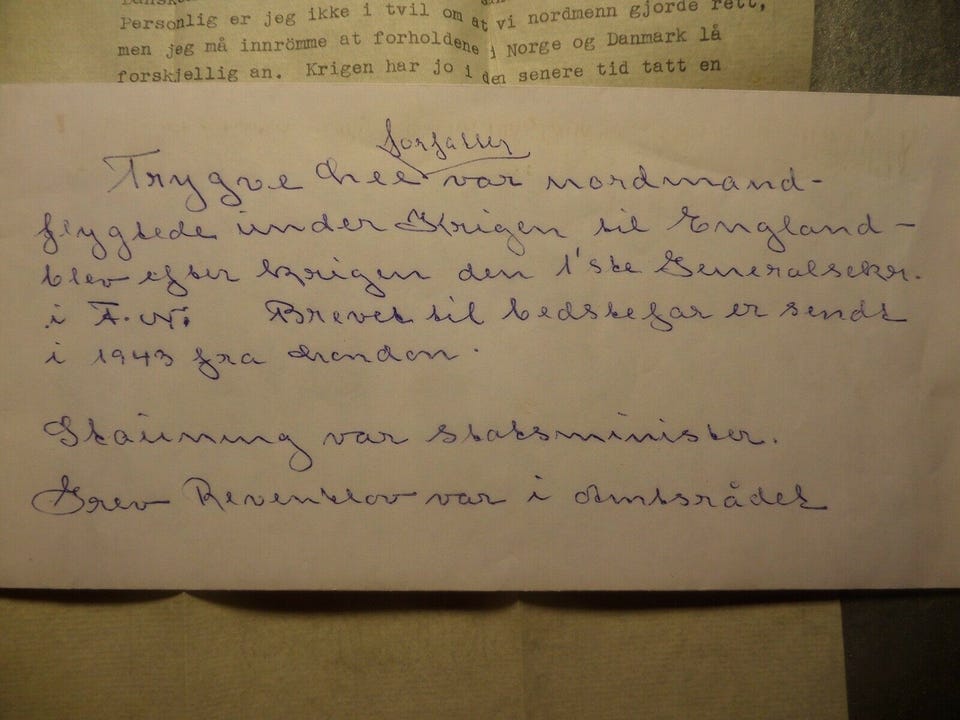 Personlig er jeg ikke i tvil om at vi nordmenn gjorde rett,
men jeg må innrömme at forholdene i Norge og Danmark lå
forskjellig an. Krigen har jo i den senere tid tatt en
forfatter
Trygve Lee var nordmand-
flygtede under Krigen til England-
blev efter krigen den 1'ste Generalsekr.
i F.N. Brevet til bedstefar er sendt
i 1943 fra London.
Stauning var statsminister.
Grev Reventlov var i Amtsrådet